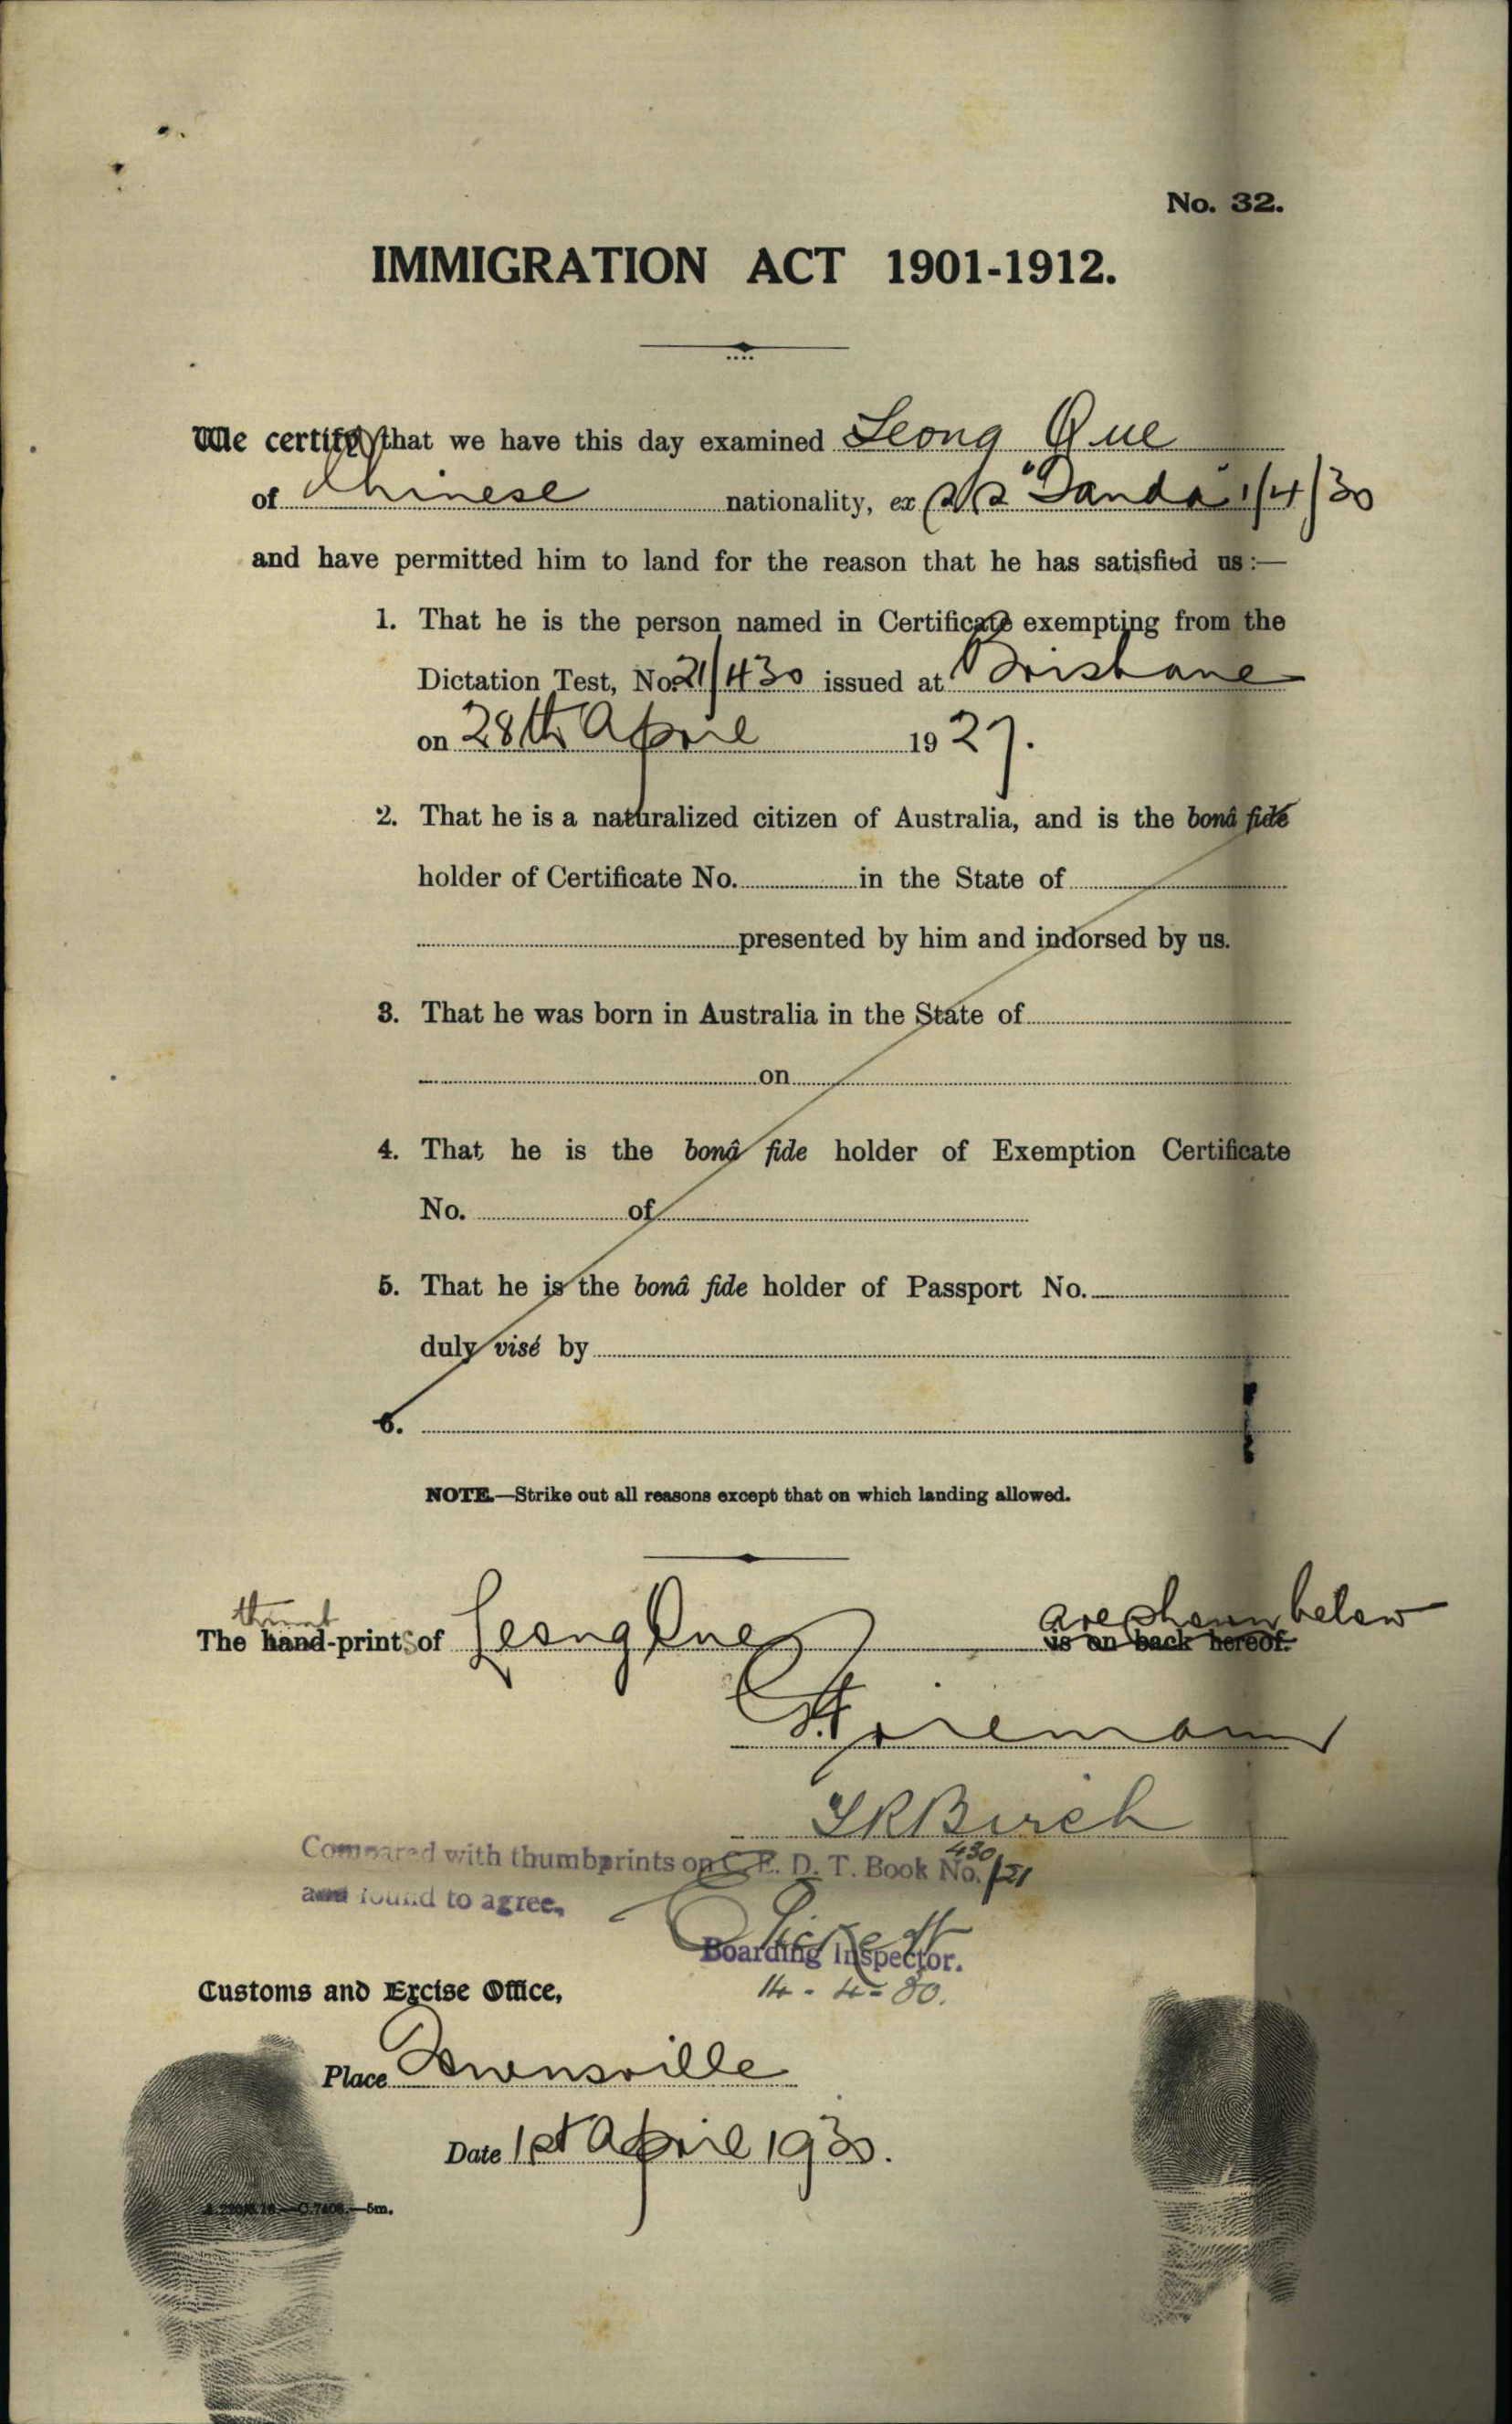 No. 32.
IMMIGRATION ACT 1901-1912.
We certify that we have this day examined Leong Que
of Chinese nationality, ex s/s "Tanda" 1/4/30
and have permitted him to land for the reason that he has satisfied us:—
1. That he is the person named in Certificate exempting from the
Dictation Test, No. 21/430 issued at Brisbane
on 28th April 1927.
2. That he is a naturalized citizen of Australia, and is the bonâ fide
holder of Certificate No. in the State of
presented by him and indorsed by us.
3. That he was born in Australia in the State of
on
4. That he is the bonâ fide holder of Exemption Certificate
No. of
5. That he is the bonâ fide holder of Passport No.
duly visé by
6.
NOTE.—Strike out all reasons except that on which landing allowed.
thumb are shown below
The hand-prints of Leong Que is on back hereof.
Compared with thumbprints on C. E. D. T. Book No. 430/21
and found to agree.
Boarding Inspector.
14-4-30.
Customs and Excise Office,
Place Townsville
Date 1st April 1930.
—5m.